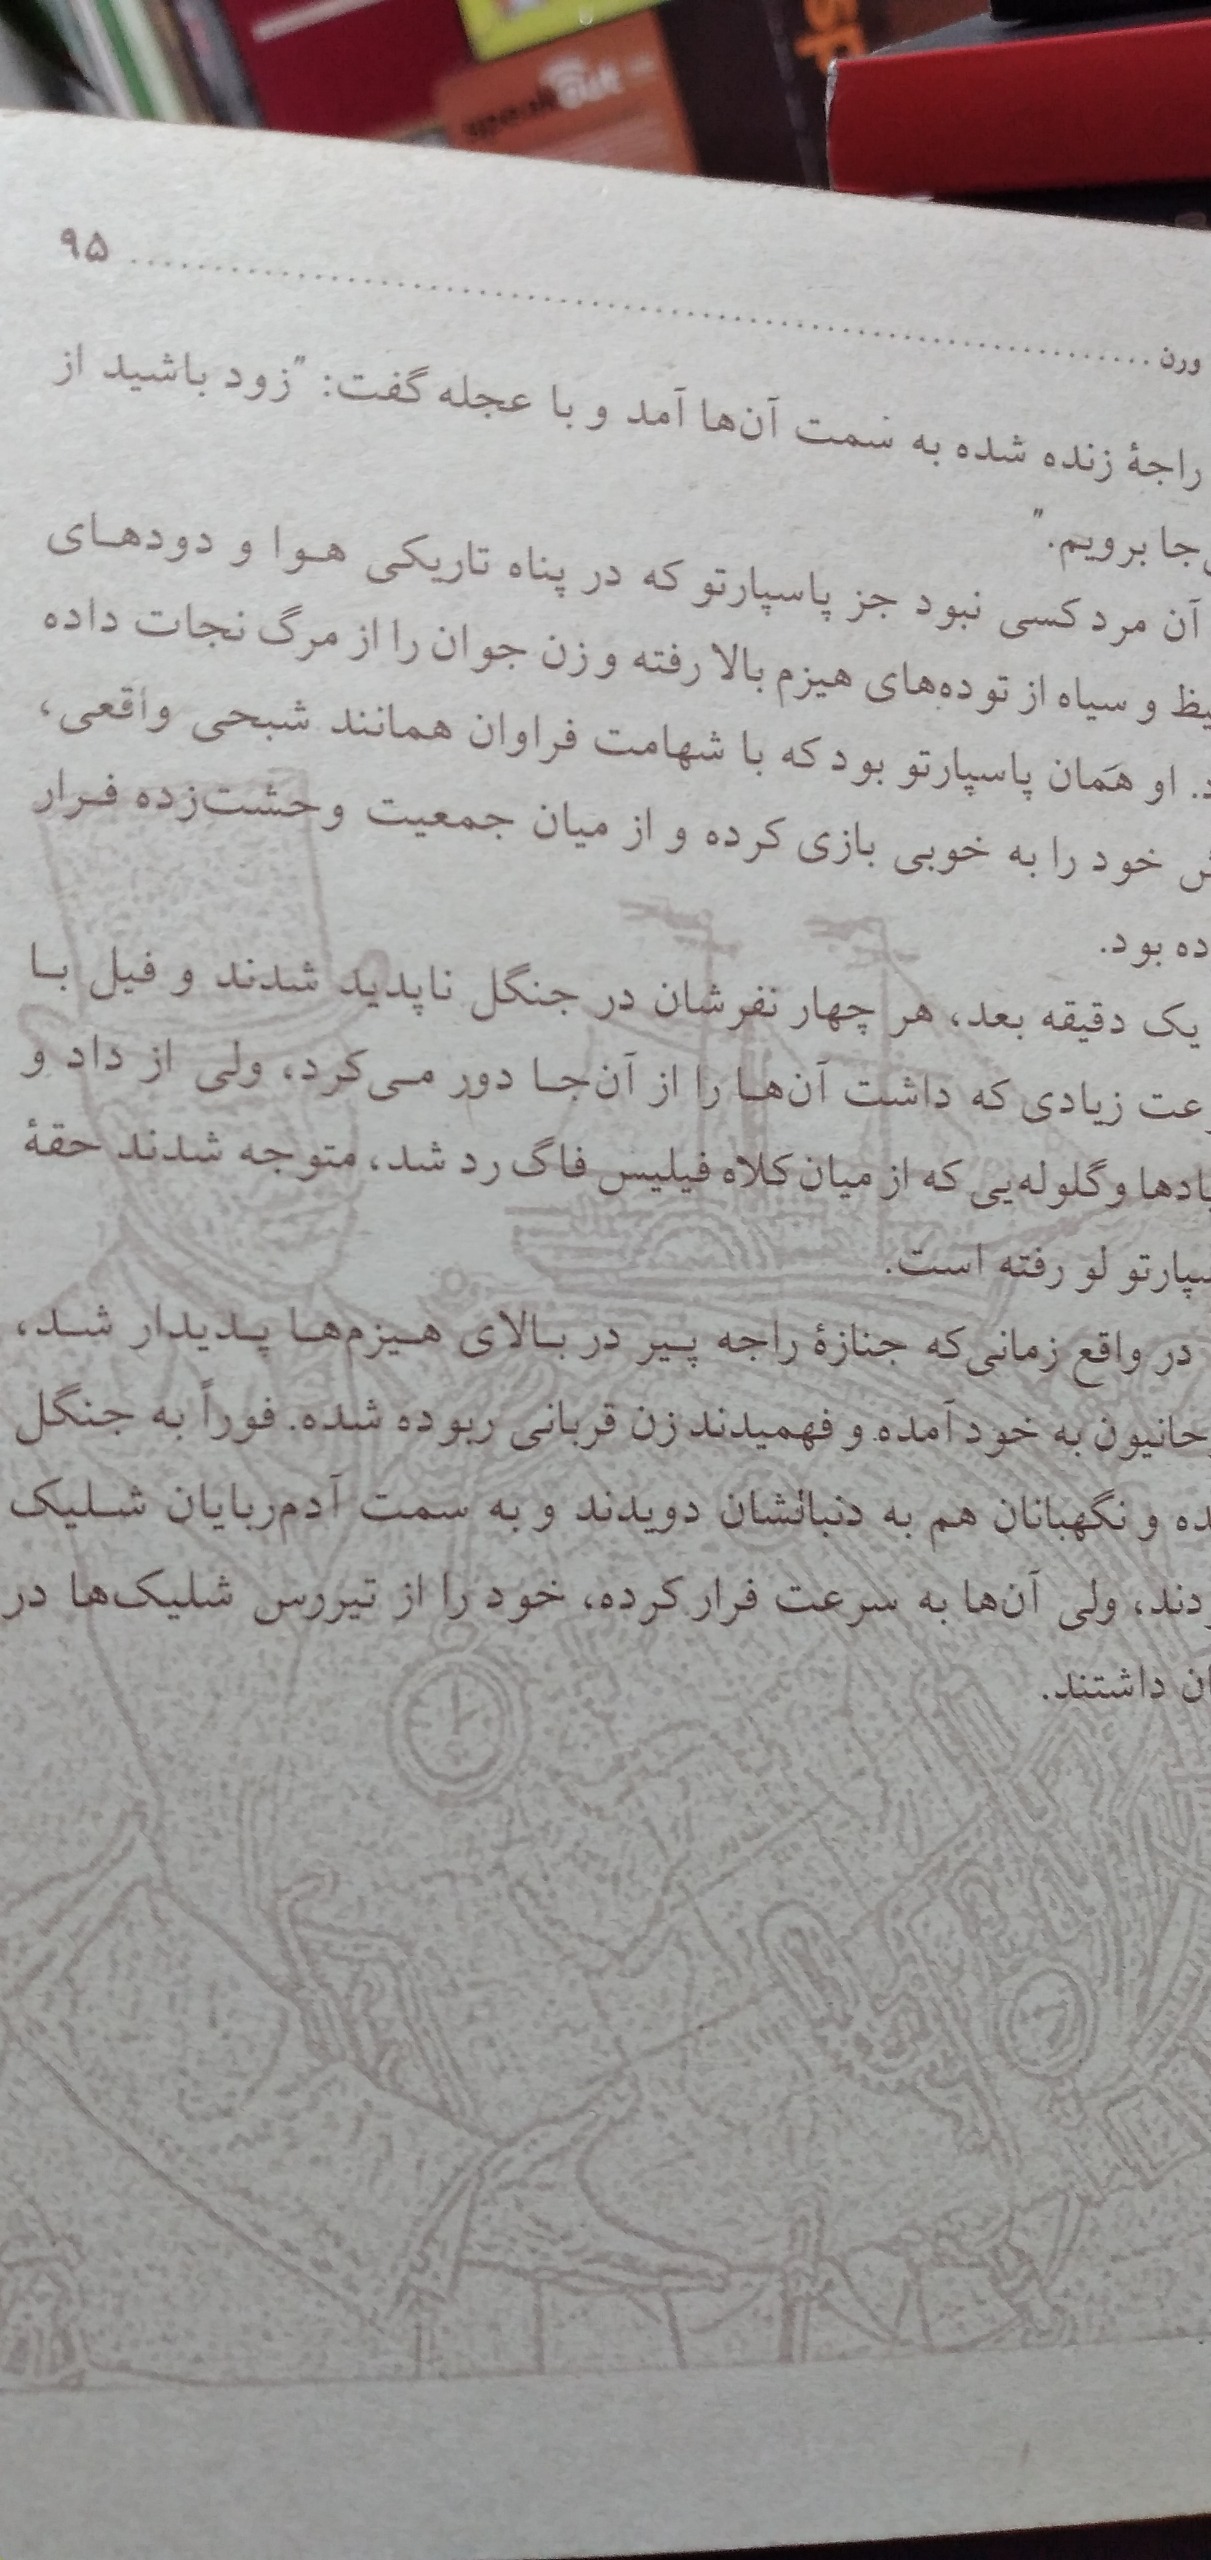 speakout
sp
۹۵
ورن
راجهٔ زنده شده به سمت آن‌ها آمد و با عجله گفت: "زود باشید از
جا برویم."
آن مرد کسی نبود جز پاسپارتو که در پناه تاریکی هوا و دودهای
و سیاه از توده‌های هیزم بالا رفته و زن جوان را از مرگ نجات داده
او همان پاسپارتو بود که با شهامت فراوان همانند شبحی واقعی،
خود را به خوبی بازی کرده و از میان جمعیت وحشت‌زده فرار
ده بود.
یک دقیقه بعد، هر چهار نفرشان در جنگل ناپدید شدند و فیل با
عت زیادی که داشت آن‌ها را از آن‌جا دور می‌کرد، ولی از داد و
ادها و گلوله‌یی که از میان کلاه فیلیس فاگ رد شد، متوجه شدند حقهٔ
سپارتو لو رفته است.
در واقع زمانی‌که جنازهٔ راجه پیر در بالای هیزم‌ها پدیدار شد،
حانیون به خود آمده و فهمیدند زن قربانی ربوده شده. فوراً به جنگل
ده و نگهبانان هم به دنبالشان دویدند و به سمت آدم‌ربایان شلیک
ردند، ولی آن‌ها به سرعت فرار کرده، خود را از تیررس شلیک‌ها در
ان داشتند.